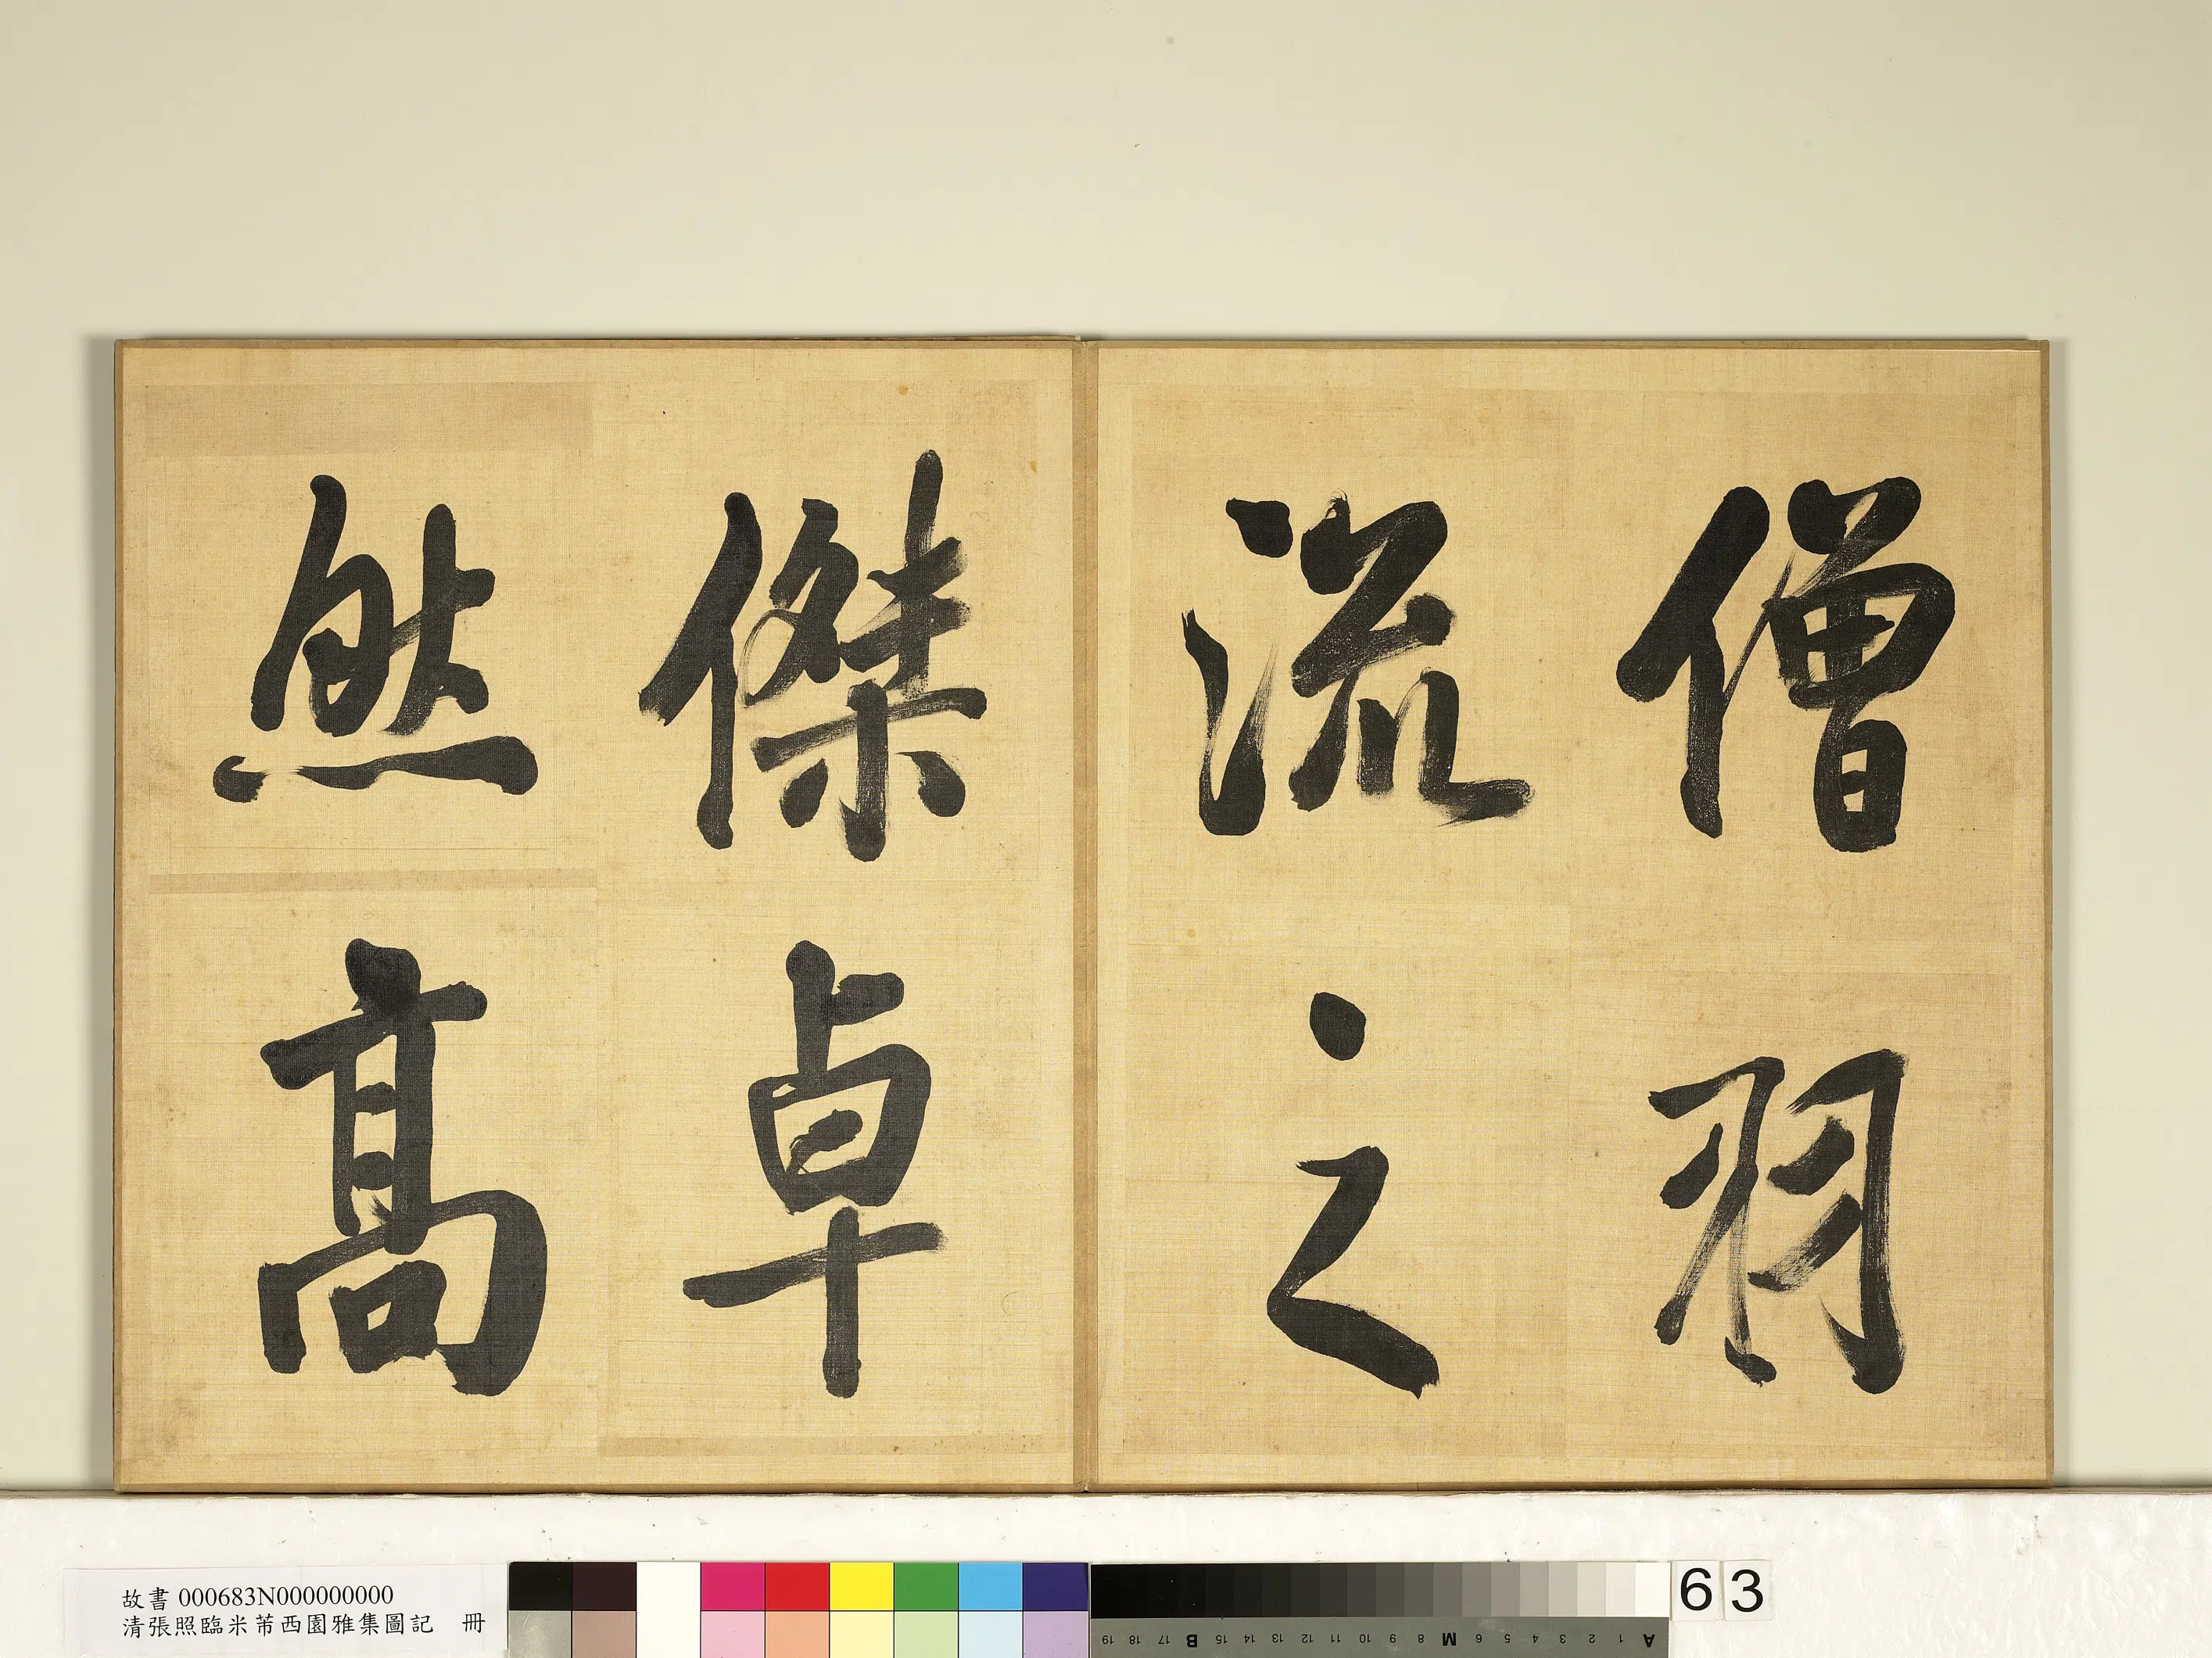 僧羽
流之
傑卓
然高
故書 000683N000000000
清張照臨米芾西園雅集圖記 冊
63
19 18 17 B 15 14 13 12 11 10 9 8 M 6 5 4 3 2 1 A